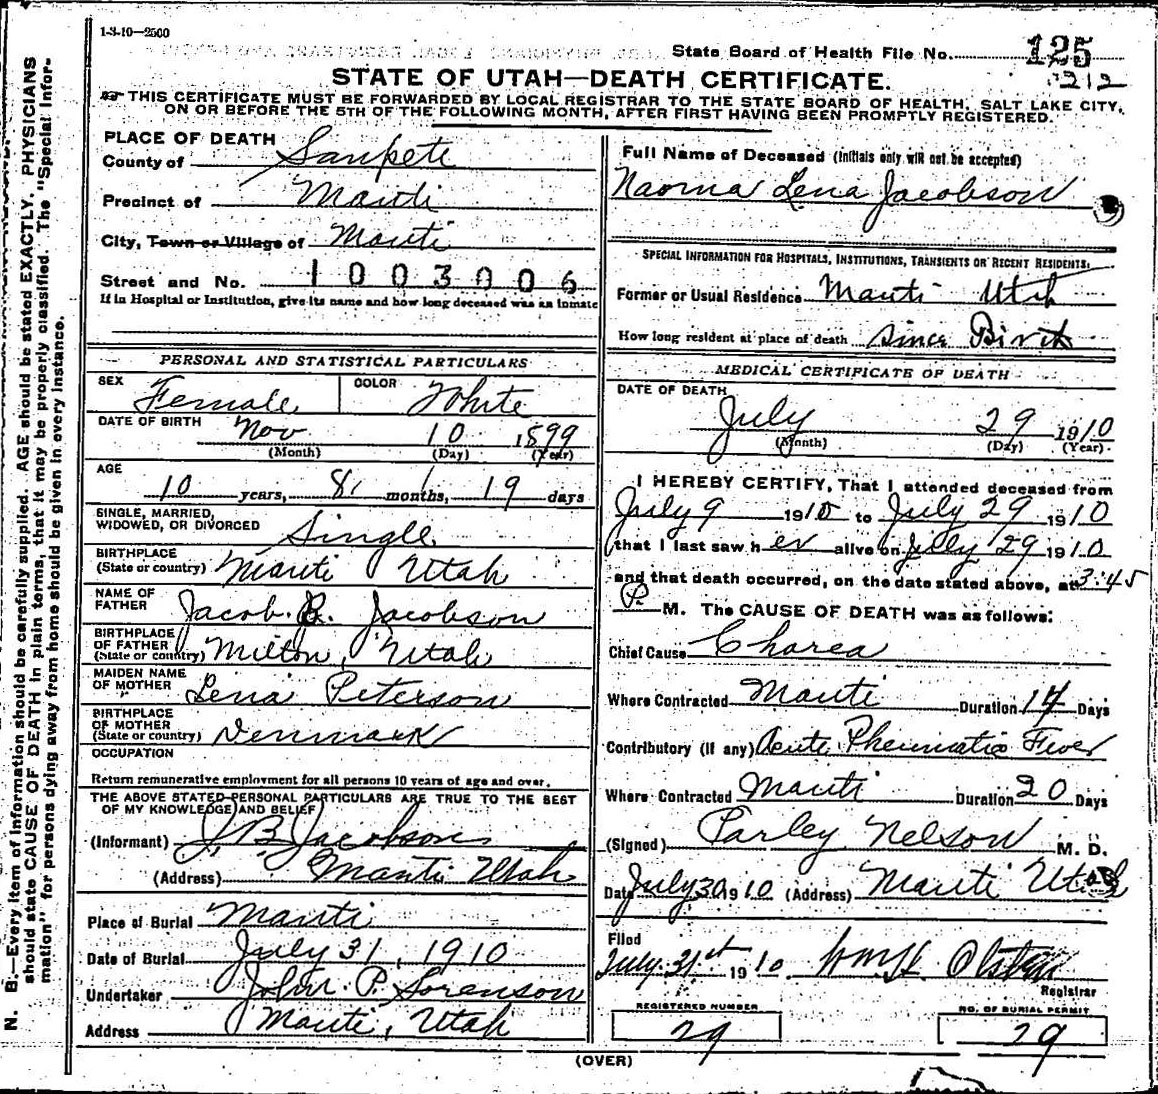 1-3-10—2500
State Board of Health File No. 125
212
STATE OF UTAH—DEATH CERTIFICATE.
THIS CERTIFICATE MUST BE FORWARDED BY LOCAL REGISTRAR TO THE STATE BOARD OF HEALTH, SALT LAKE CITY,
ON OR BEFORE THE 5TH OF THE FOLLOWING MONTH, AFTER FIRST HAVING BEEN PROMPTLY REGISTERED.
PLACE OF DEATH
County of Sanpete
Precinct of Manti
City, Town or Village of Manti
Street and No. 1003006
If in Hospital or Institution, give its name and how long deceased was an inmate
PERSONAL AND STATISTICAL PARTICULARS
SEX Female COLOR White
DATE OF BIRTH Nov 10 1899
(Month) (Day) (Year)
AGE
10 years, 8 months, 19 days
SINGLE, MARRIED,
WIDOWED, OR DIVORCED Single
BIRTHPLACE
(State or country) Manti Utah
NAME OF
FATHER Jacob B. Jacobson
BIRTHPLACE
OF FATHER
(State or country) Milton, Utah
MAIDEN NAME
OF MOTHER Lena Peterson
BIRTHPLACE
OF MOTHER
(State or country) Denmark
OCCUPATION
Return remunerative employment for all persons 10 years of age and over.
THE ABOVE STATED PERSONAL PARTICULARS ARE TRUE TO THE BEST
OF MY KNOWLEDGE AND BELIEF
(Informant) J B Jacobson
(Address) Manti Utah
Place of Burial Manti
Date of Burial July 31, 1910
Undertaker John P. Sorenson
Address Manti, Utah
Full Name of Deceased (Initials only will not be accepted)
Naoma Lena Jacobson
SPECIAL INFORMATION FOR HOSPITALS, INSTITUTIONS, TRANSIENTS OR RECENT RESIDENTS:
Former or Usual Residence Manti Utah
How long resident at place of death Since Birth
MEDICAL CERTIFICATE OF DEATH
DATE OF DEATH
July 29 1910
(Month) (Day) (Year)
I HEREBY CERTIFY, That I attended deceased from
July 9 1910 to July 29 1910
that I last saw her alive on July 29 1910
and that death occurred, on the date stated above, at 3:45
P. M. The CAUSE OF DEATH was as follows:
Chief Cause Chorea
Where Contracted Manti Duration 14 Days
Contributory (If any) Acute Rheumatic Fever
Where Contracted Manti Duration 20 Days
(Signed) Parley Nelson M. D.
Date July 30 1910 (Address) Manti Utah
Filed
July 31st 1910 Wm H
Registrar
REGISTERED NUMBER
29
NO. OF BURIAL PERMIT
29
(OVER)
N. B.—Every item of information should be carefully supplied. AGE should be stated EXACTLY. PHYSICIANS
should state CAUSE OF DEATH in plain terms, that it may be properly classified. The "Special Infor-
mation" for persons dying away from home should be given in every instance.